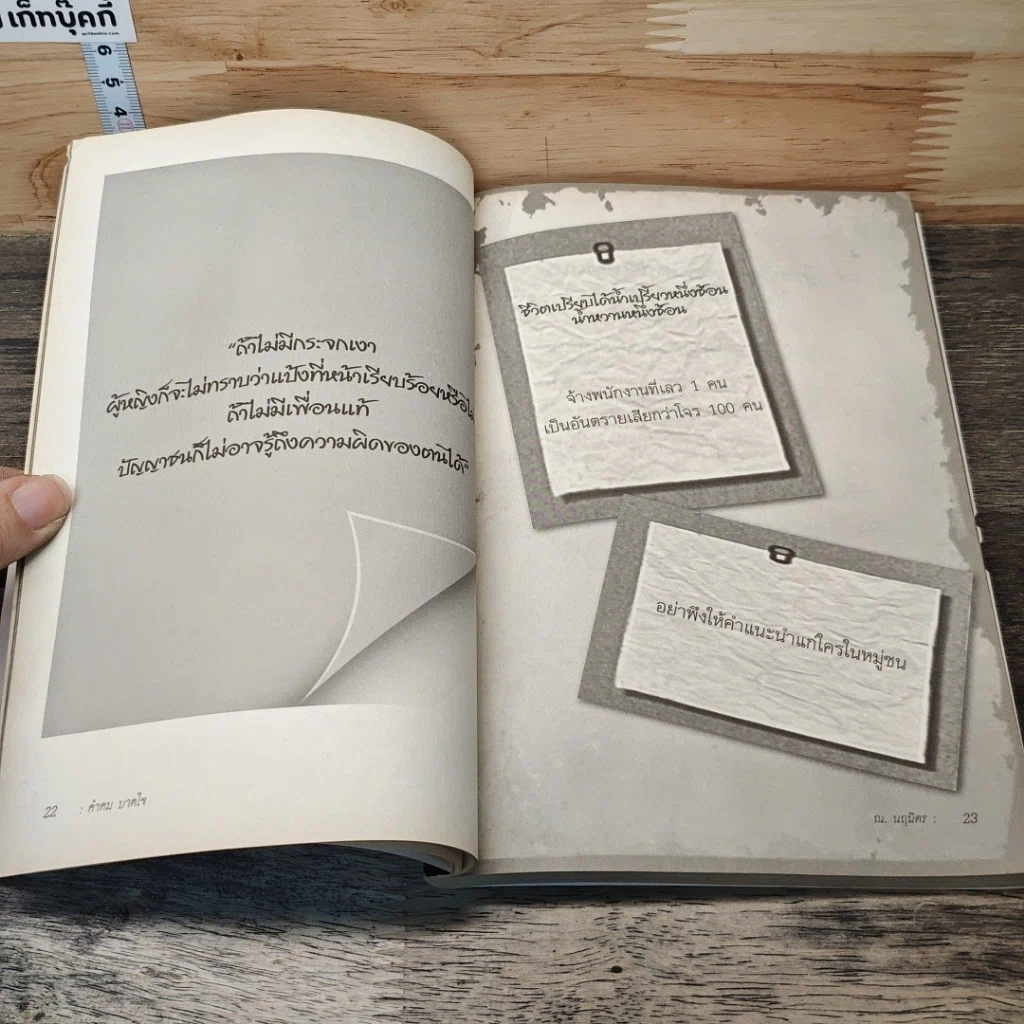 เก็ทบุ๊คกี้
getbookie.com
6
5
4
"ถ้าไม่มีกระจกเงา
ผู้หญิงก็จะไม่ทราบว่าแป้งที่หน้าเรียบร้อยหรือไม่
ถ้าไม่มีเพื่อนแท้
ปัญญาชนก็ไม่อาจรู้ถึงความผิดของตนได้"
22 : คำคม บาดใจ
ชีวิตเปรียบได้น้ำเปรี้ยวหนึ่งช้อน
น้ำหวานหนึ่งช้อน
จ้างพนักงานที่เลว 1 คน
เป็นอันตรายเสียกว่าโจร 100 คน
อย่าพึงให้คำแนะนำแก่ใครในหมู่ชน
ณ. นฤมิตร : 23